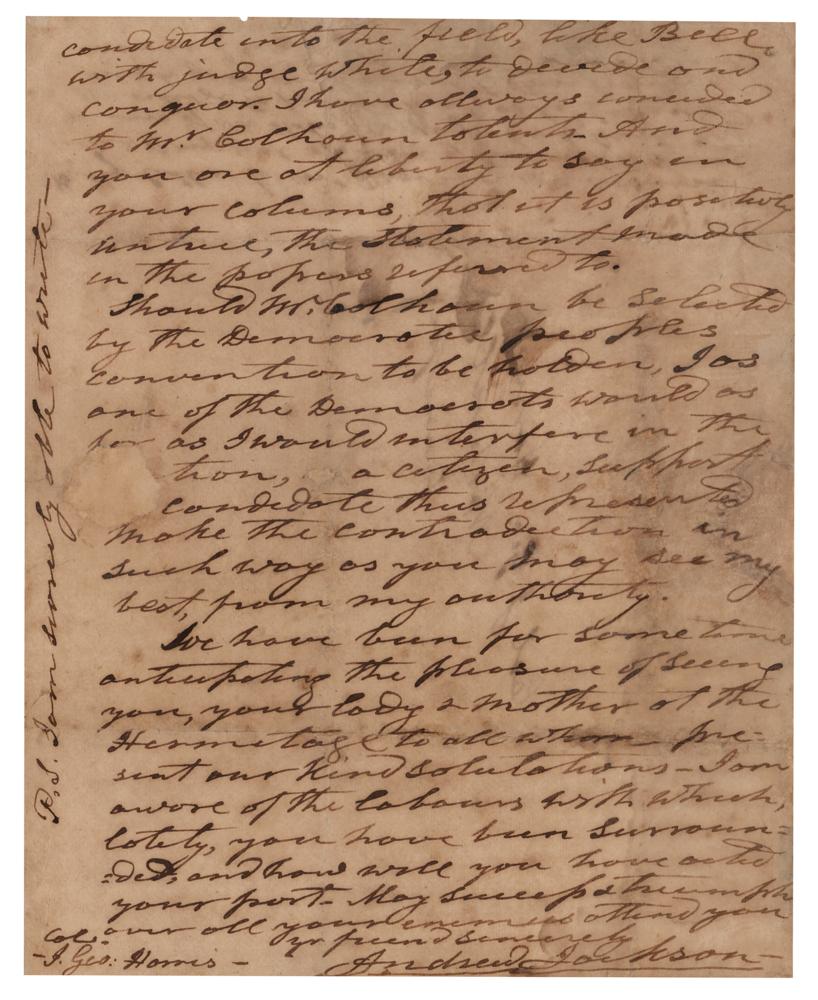 candidate into the field, like Bell,
with judge White, to devide and
conquor. I have allways conceded
to Mr. Calhoun talents. And
you are at liberty to say in
your colums, that it is positively
untrue, the statement made
in the papers referred to.
Should Mr. Calhoun be selected
by the Democratic peoples
convention to be holden, I as
one of the Democrats would as
far as I would interfere in the
tion, a citizen, support
candidate thus represented
make the contradiction in
such way as you may see my
best, from my authority.
We have been for some time
anticipating the pleasure of seeing
you, your lady & mother at the
Hermitage to all whom pre-
sent our kind salutations - I am
aware of the labours with which,
lately, you have been surroun=
=ded, and how well you have acted
your part. May success & triumph
over all your enemies attend you
yr friend sincerely
Andrew Jackson
Col.
J. Geo: Harris -
P.S. I am scarcely able to write -